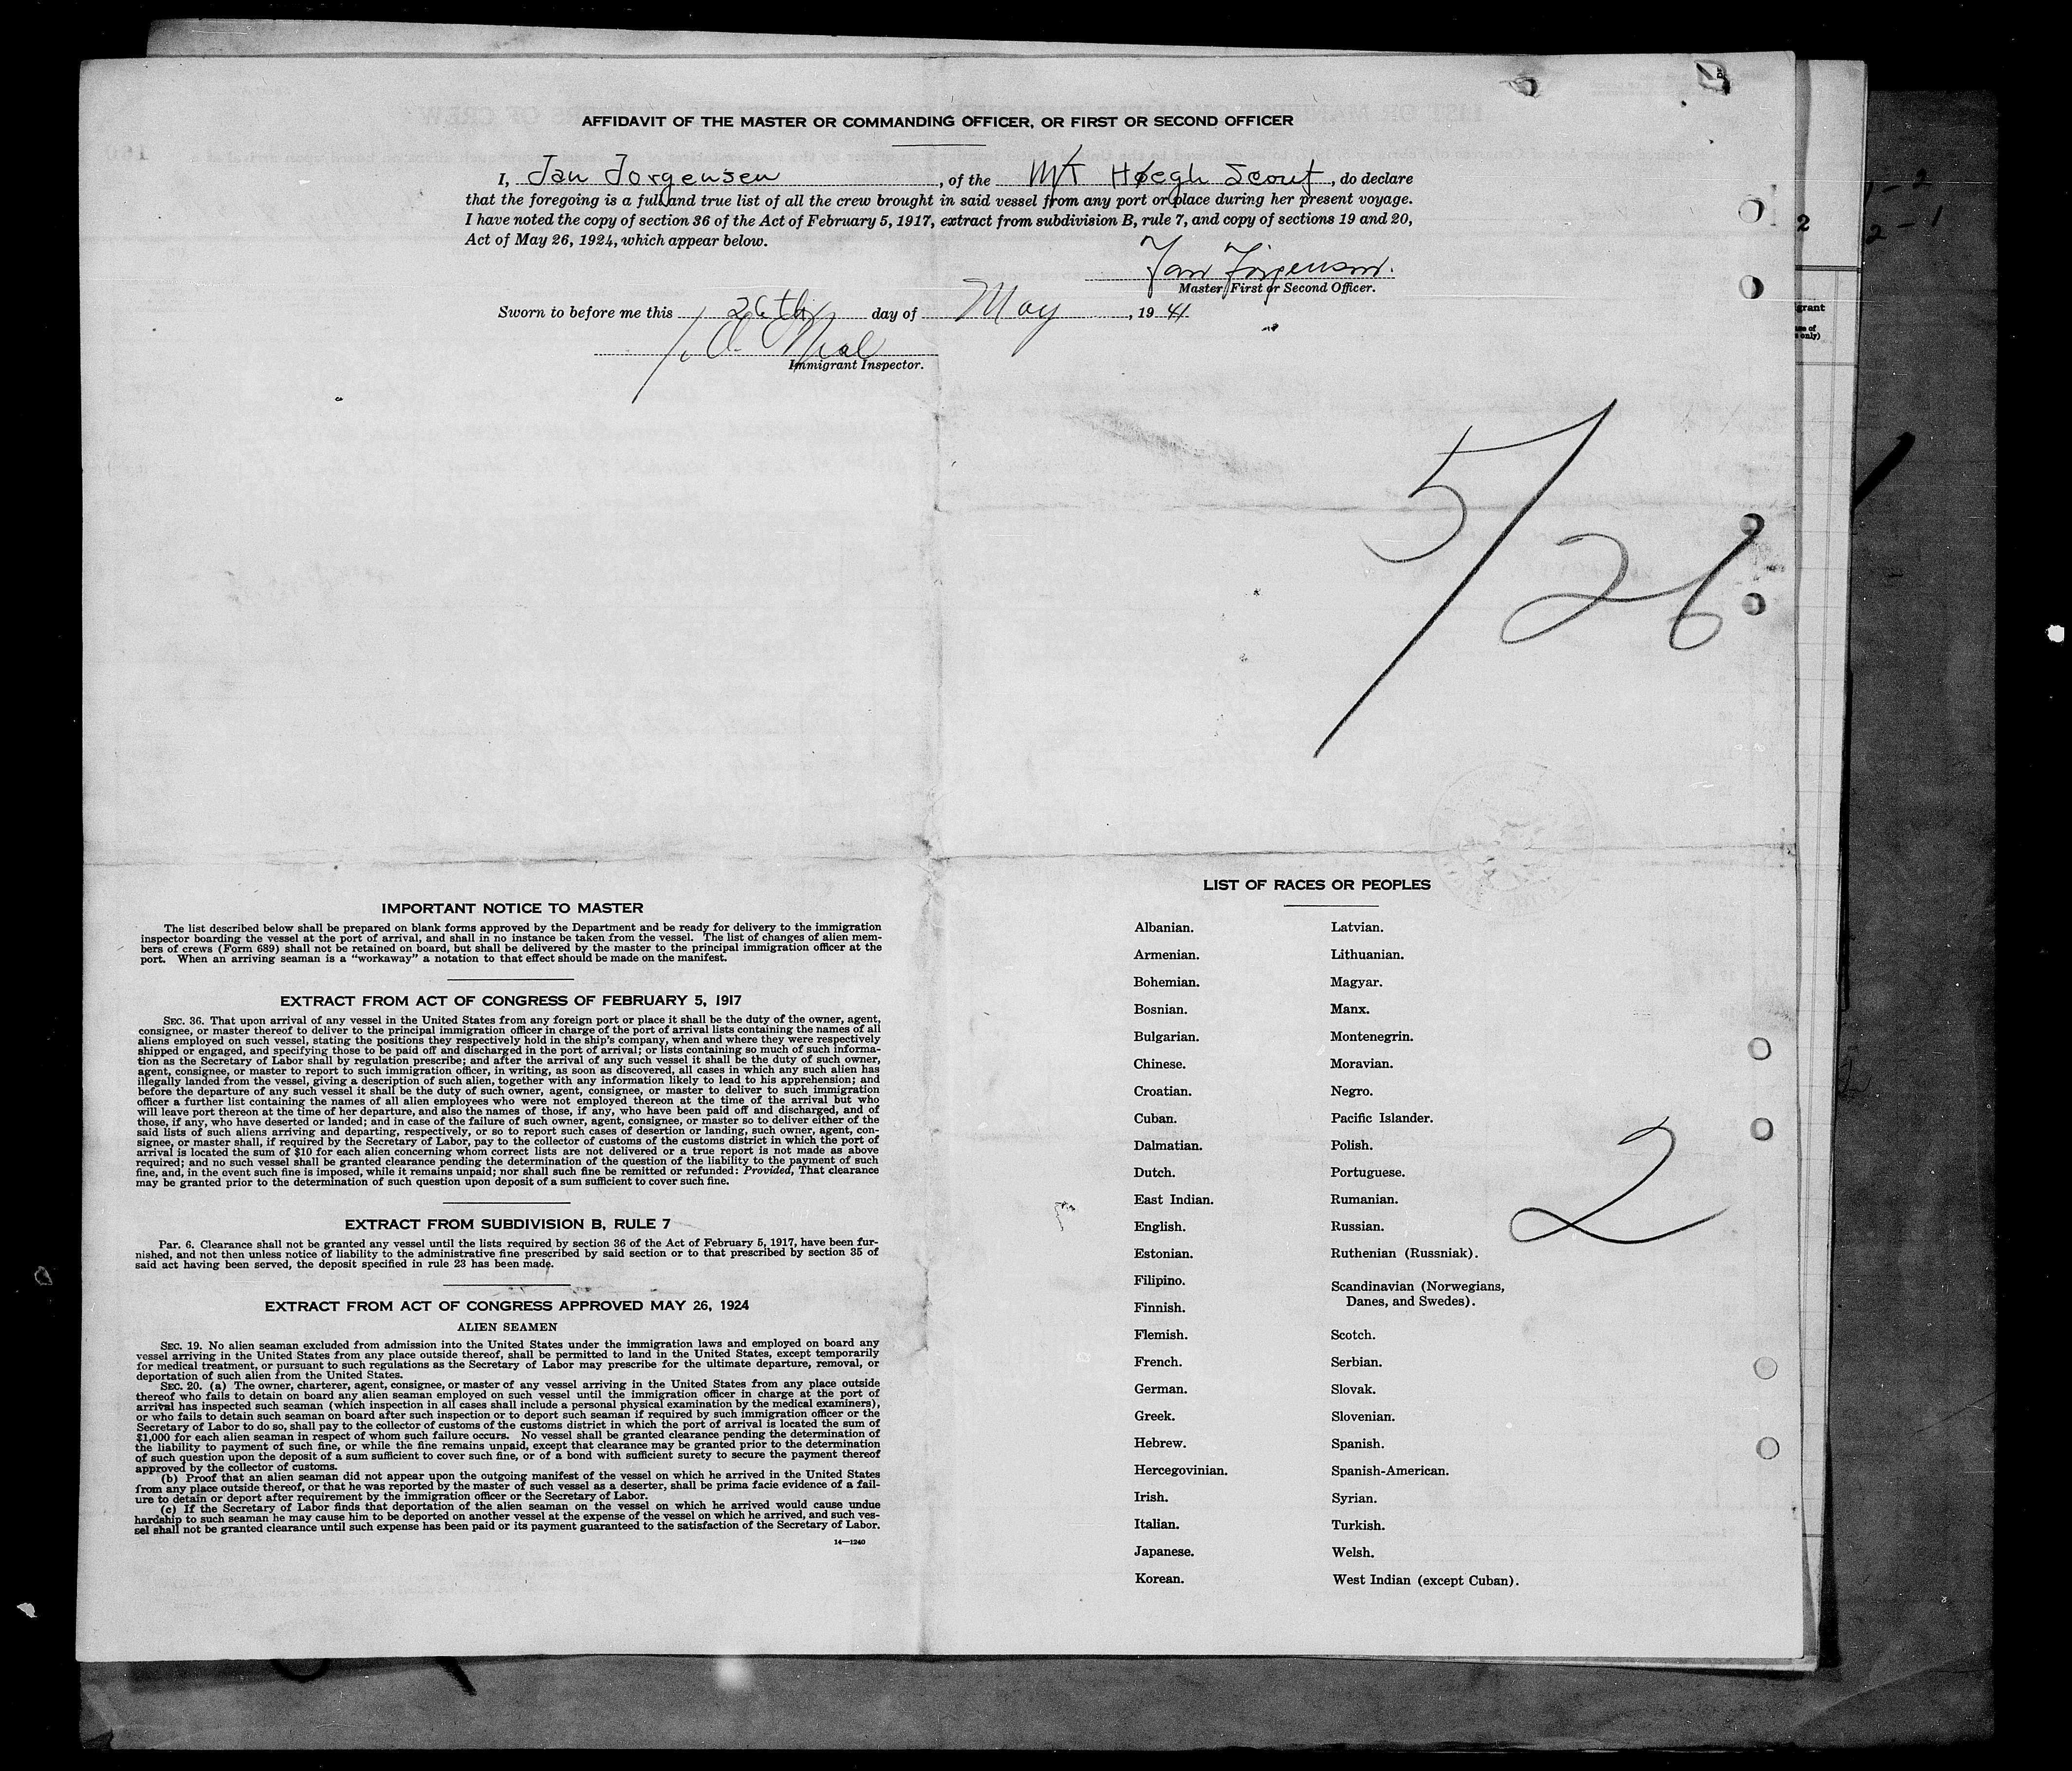 AFFIDAVIT OF THE MASTER OR COMMANDING OFFICER, OR FIRST OR SECOND OFFICER
I, Jan Jorgensen, of the M/T Høegh Scout, do declare
that the foregoing is a full and true list of all the crew brought in said vessel from any port or place during her present voyage.
I have noted the copy of section 36 of the Act of February 5, 1917, extract from subdivision B, rule 7, and copy of sections 19 and 20,
Act of May 26, 1924, which appear below.
Jan Jörgensen.
Master, First or Second Officer.
Sworn to before me this 26th day of May, 1941
Immigrant Inspector.
5/26
2
IMPORTANT NOTICE TO MASTER
The list described below shall be prepared on blank forms approved by the Department and be ready for delivery to the immigration
inspector boarding the vessel at the port of arrival, and shall in no instance be taken from the vessel. The list of changes of alien mem-
bers of crews (Form 689) shall not be retained on board, but shall be delivered by the master to the principal immigration officer at the
port. When an arriving seaman is a "workaway" a notation to that effect should be made on the manifest.
EXTRACT FROM ACT OF CONGRESS OF FEBRUARY 5, 1917
SEC. 36. That upon arrival of any vessel in the United States from any foreign port or place it shall be the duty of the owner, agent,
consignee, or master thereof to deliver to the principal immigration officer in charge of the port of arrival lists containing the names of all
aliens employed on such vessel, stating the positions they respectively hold in the ship's company, when and where they were respectively
shipped or engaged, and specifying those to be paid off and discharged in the port of arrival; or lists containing so much of such informa-
tion as the Secretary of Labor shall by regulation prescribe; and after the arrival of any such vessel it shall be the duty of such owner,
agent, consignee, or master to report to such immigration officer, in writing, as soon as discovered, all cases in which any such alien has
illegally landed from the vessel, giving a description of such alien, together with any information likely to lead to his apprehension; and
before the departure of any such vessel it shall be the duty of such owner, agent, consignee, or master to deliver to such immigration
officer a further list containing the names of all alien employees who were not employed thereon at the time of the arrival but who
will leave port thereon at the time of her departure, and also the names of those, if any, who have been paid off and discharged, and of
those, if any, who have deserted or landed; and in case of the failure of such owner, agent, consignee, or master so to deliver either of the
said lists of such aliens arriving and departing, respectively, or so to report such cases of desertion or landing, such owner, agent, con-
signee, or master shall, if required by the Secretary of Labor, pay to the collector of customs of the customs district in which the port of
arrival is located the sum of $10 for each alien concerning whom correct lists are not delivered or a true report is not made as above
required; and no such vessel shall be granted clearance pending the determination of the question of the liability to the payment of such
fine, and, in the event such fine is imposed, while it remains unpaid; nor shall such fine be remitted or refunded: Provided, That clearance
may be granted prior to the determination of such question upon deposit of a sum sufficient to cover such fine.
EXTRACT FROM SUBDIVISION B, RULE 7
Par. 6. Clearance shall not be granted any vessel until the lists required by section 36 of the Act of February 5, 1917, have been fur-
nished, and not then unless notice of liability to the administrative fine prescribed by said section or to that prescribed by section 35 of
said act having been served, the deposit specified in rule 23 has been made.
EXTRACT FROM ACT OF CONGRESS APPROVED MAY 26, 1924
ALIEN SEAMEN
SEC. 19. No alien seaman excluded from admission into the United States under the immigration laws and employed on board any
vessel arriving in the United States from any place outside thereof, shall be permitted to land in the United States, except temporarily
for medical treatment, or pursuant to such regulations as the Secretary of Labor may prescribe for the ultimate departure, removal, or
deportation of such alien from the United States.
SEC. 20. (a) The owner, charterer, agent, consignee, or master of any vessel arriving in the United States from any place outside
thereof who fails to detain on board any alien seaman employed on such vessel until the immigration officer in charge at the port of
arrival has inspected such seaman (which inspection in all cases shall include a personal physical examination by the medical examiners),
or who fails to detain such seaman on board after such inspection or to deport such seaman if required by such immigration officer or the
Secretary of Labor to do so, shall pay to the collector of customs of the customs district in which the port of arrival is located the sum of
$1,000 for each alien seaman in respect of whom such failure occurs. No vessel shall be granted clearance pending the determination of
the liability to payment of such fine, or while the fine remains unpaid, except that clearance may be granted prior to the determination
of such question upon the deposit of a sum sufficient to cover such fine, or of a bond with sufficient surety to secure the payment thereof
approved by the collector of customs.
(b) Proof that an alien seaman did not appear upon the outgoing manifest of the vessel on which he arrived in the United States
from any place outside thereof, or that he was reported by the master of such vessel as a deserter, shall be prima facie evidence of a fail-
ure to detain or deport after requirement by the immigration officer or the Secretary of Labor.
(c) If the Secretary of Labor finds that deportation of the alien seaman on the vessel on which he arrived would cause undue
hardship to such seaman he may cause him to be deported on another vessel at the expense of the vessel on which he arrived, and such ves-
sel shall not be granted clearance until such expense has been paid or its payment guaranteed to the satisfaction of the Secretary of Labor.
14—1240
LIST OF RACES OR PEOPLES
Albanian.
Armenian.
Bohemian.
Bosnian.
Bulgarian.
Chinese.
Croatian.
Cuban.
Dalmatian.
Dutch.
East Indian.
English.
Estonian.
Filipino.
Finnish.
Flemish.
French.
German.
Greek.
Hebrew.
Hercegovinian.
Irish.
Italian.
Japanese.
Korean.
Latvian.
Lithuanian.
Magyar.
Manx.
Montenegrin.
Moravian.
Negro.
Pacific Islander.
Polish.
Portuguese.
Rumanian.
Russian.
Ruthenian (Russniak).
Scandinavian (Norwegians,
Danes, and Swedes).
Scotch.
Serbian.
Slovak.
Slovenian.
Spanish.
Spanish-American.
Syrian.
Turkish.
Welsh.
West Indian (except Cuban).
2